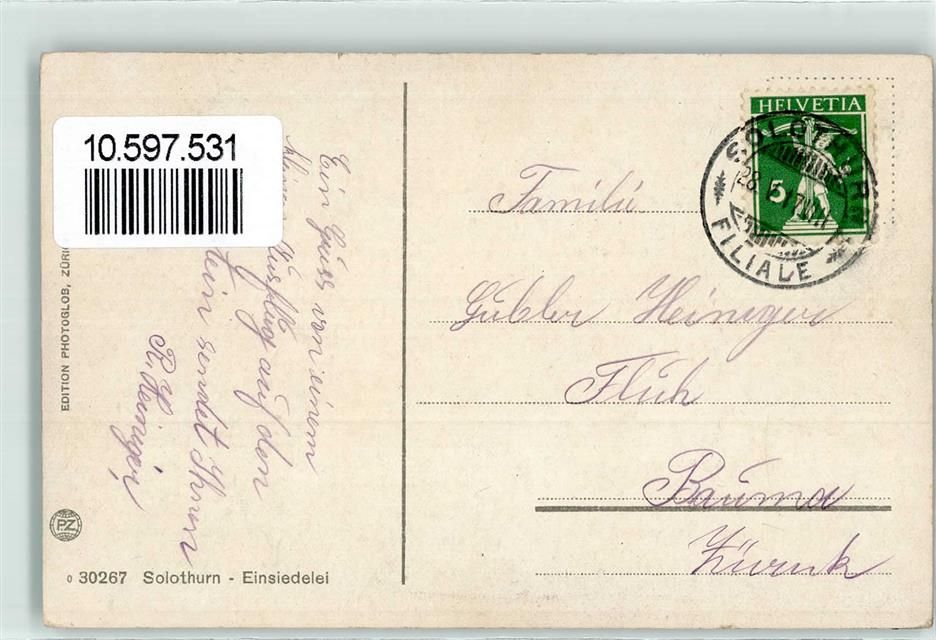 10.597.531
Ein Gruss von einem
Ausflug auf den
stein sendet Ihnen
R. Heiniger
EDITION PHOTOGLOB, ZÜRI
PZ
o 30267 Solothurn - Einsiedelei
HELVETIA
5
SOLOTHURN
FILIALE
Familie
Gubler Heiniger
Fluh
Bauma
Zürich